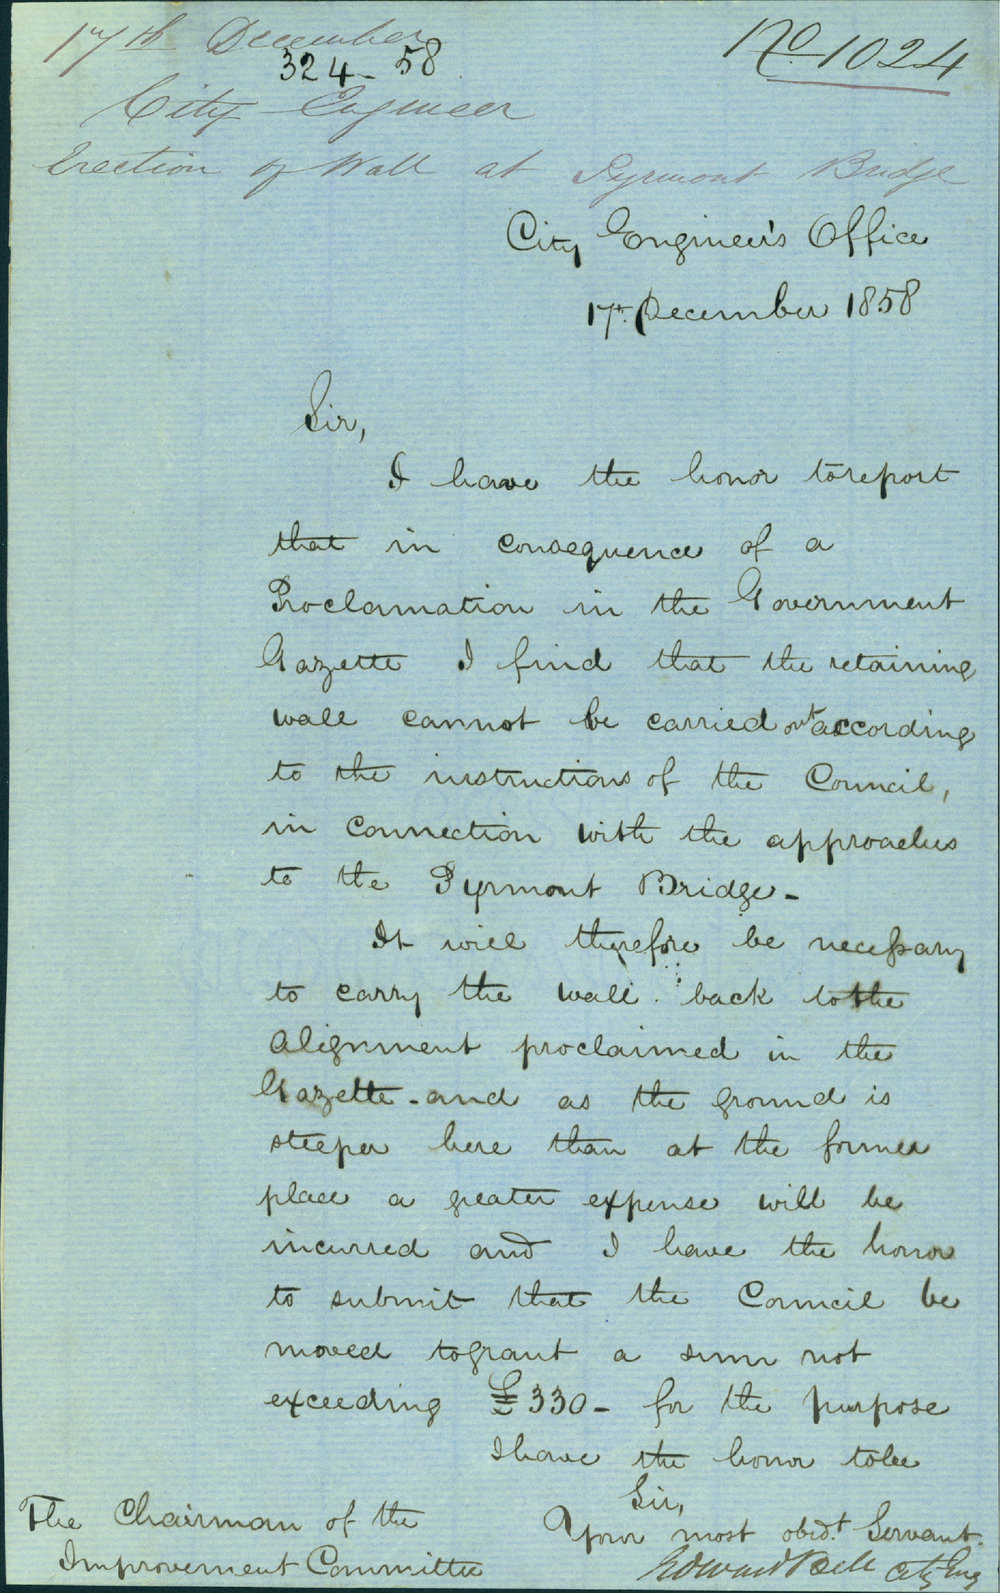 17th December
324-58
No. 1024
City Engineer
Erection of Wall at Pyrmont Bridge
City Engineer's Office
17th December 1858
Sir,
I have the honor to report
that in consequence of a
Proclamation in the Government
Gazette I find that the retaining
wall cannot be carried out according
to the instructions of the Council,
in connection with the approaches
to the Pyrmont Bridge -
It will therefore be necessary
to carry the wall back to the
alignment proclaimed in the
Gazette - and as the ground is
steeper here than at the former
place a greater expense will be
incurred and I have the honor
to submit that the Council be
moved to grant a sum not
exceeding £330 - for the purpose
I have the honor to be
Sir,
Your most obedt. Servant.
Edward Bell City Eng
The Chairman of the
Improvement Committee